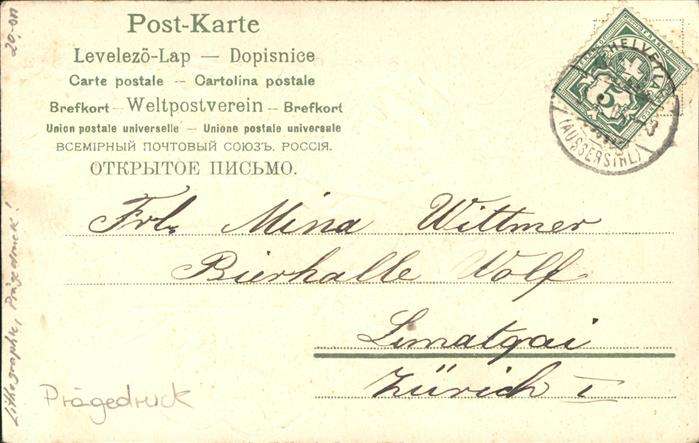 Post-Karte
Levelező-Lap — Dopisnice
Carte postale — Cartolina postale
Brefkort — Weltpostverein — Brefkort
Union postale universelle — Unione postale universale
ВСЕМІРНЫЙ ПОЧТОВЫЙ СОЮЗЪ. РОССІЯ.
ОТКРЫТОЕ ПИСЬМО.
HELVETIA
5
(AUSSERSIHL)
Frl. Mina Wittmer
Bierhalle Wolf
Limatqai
Zürich I
Prägedruck
Lithographie, Prägedruck!